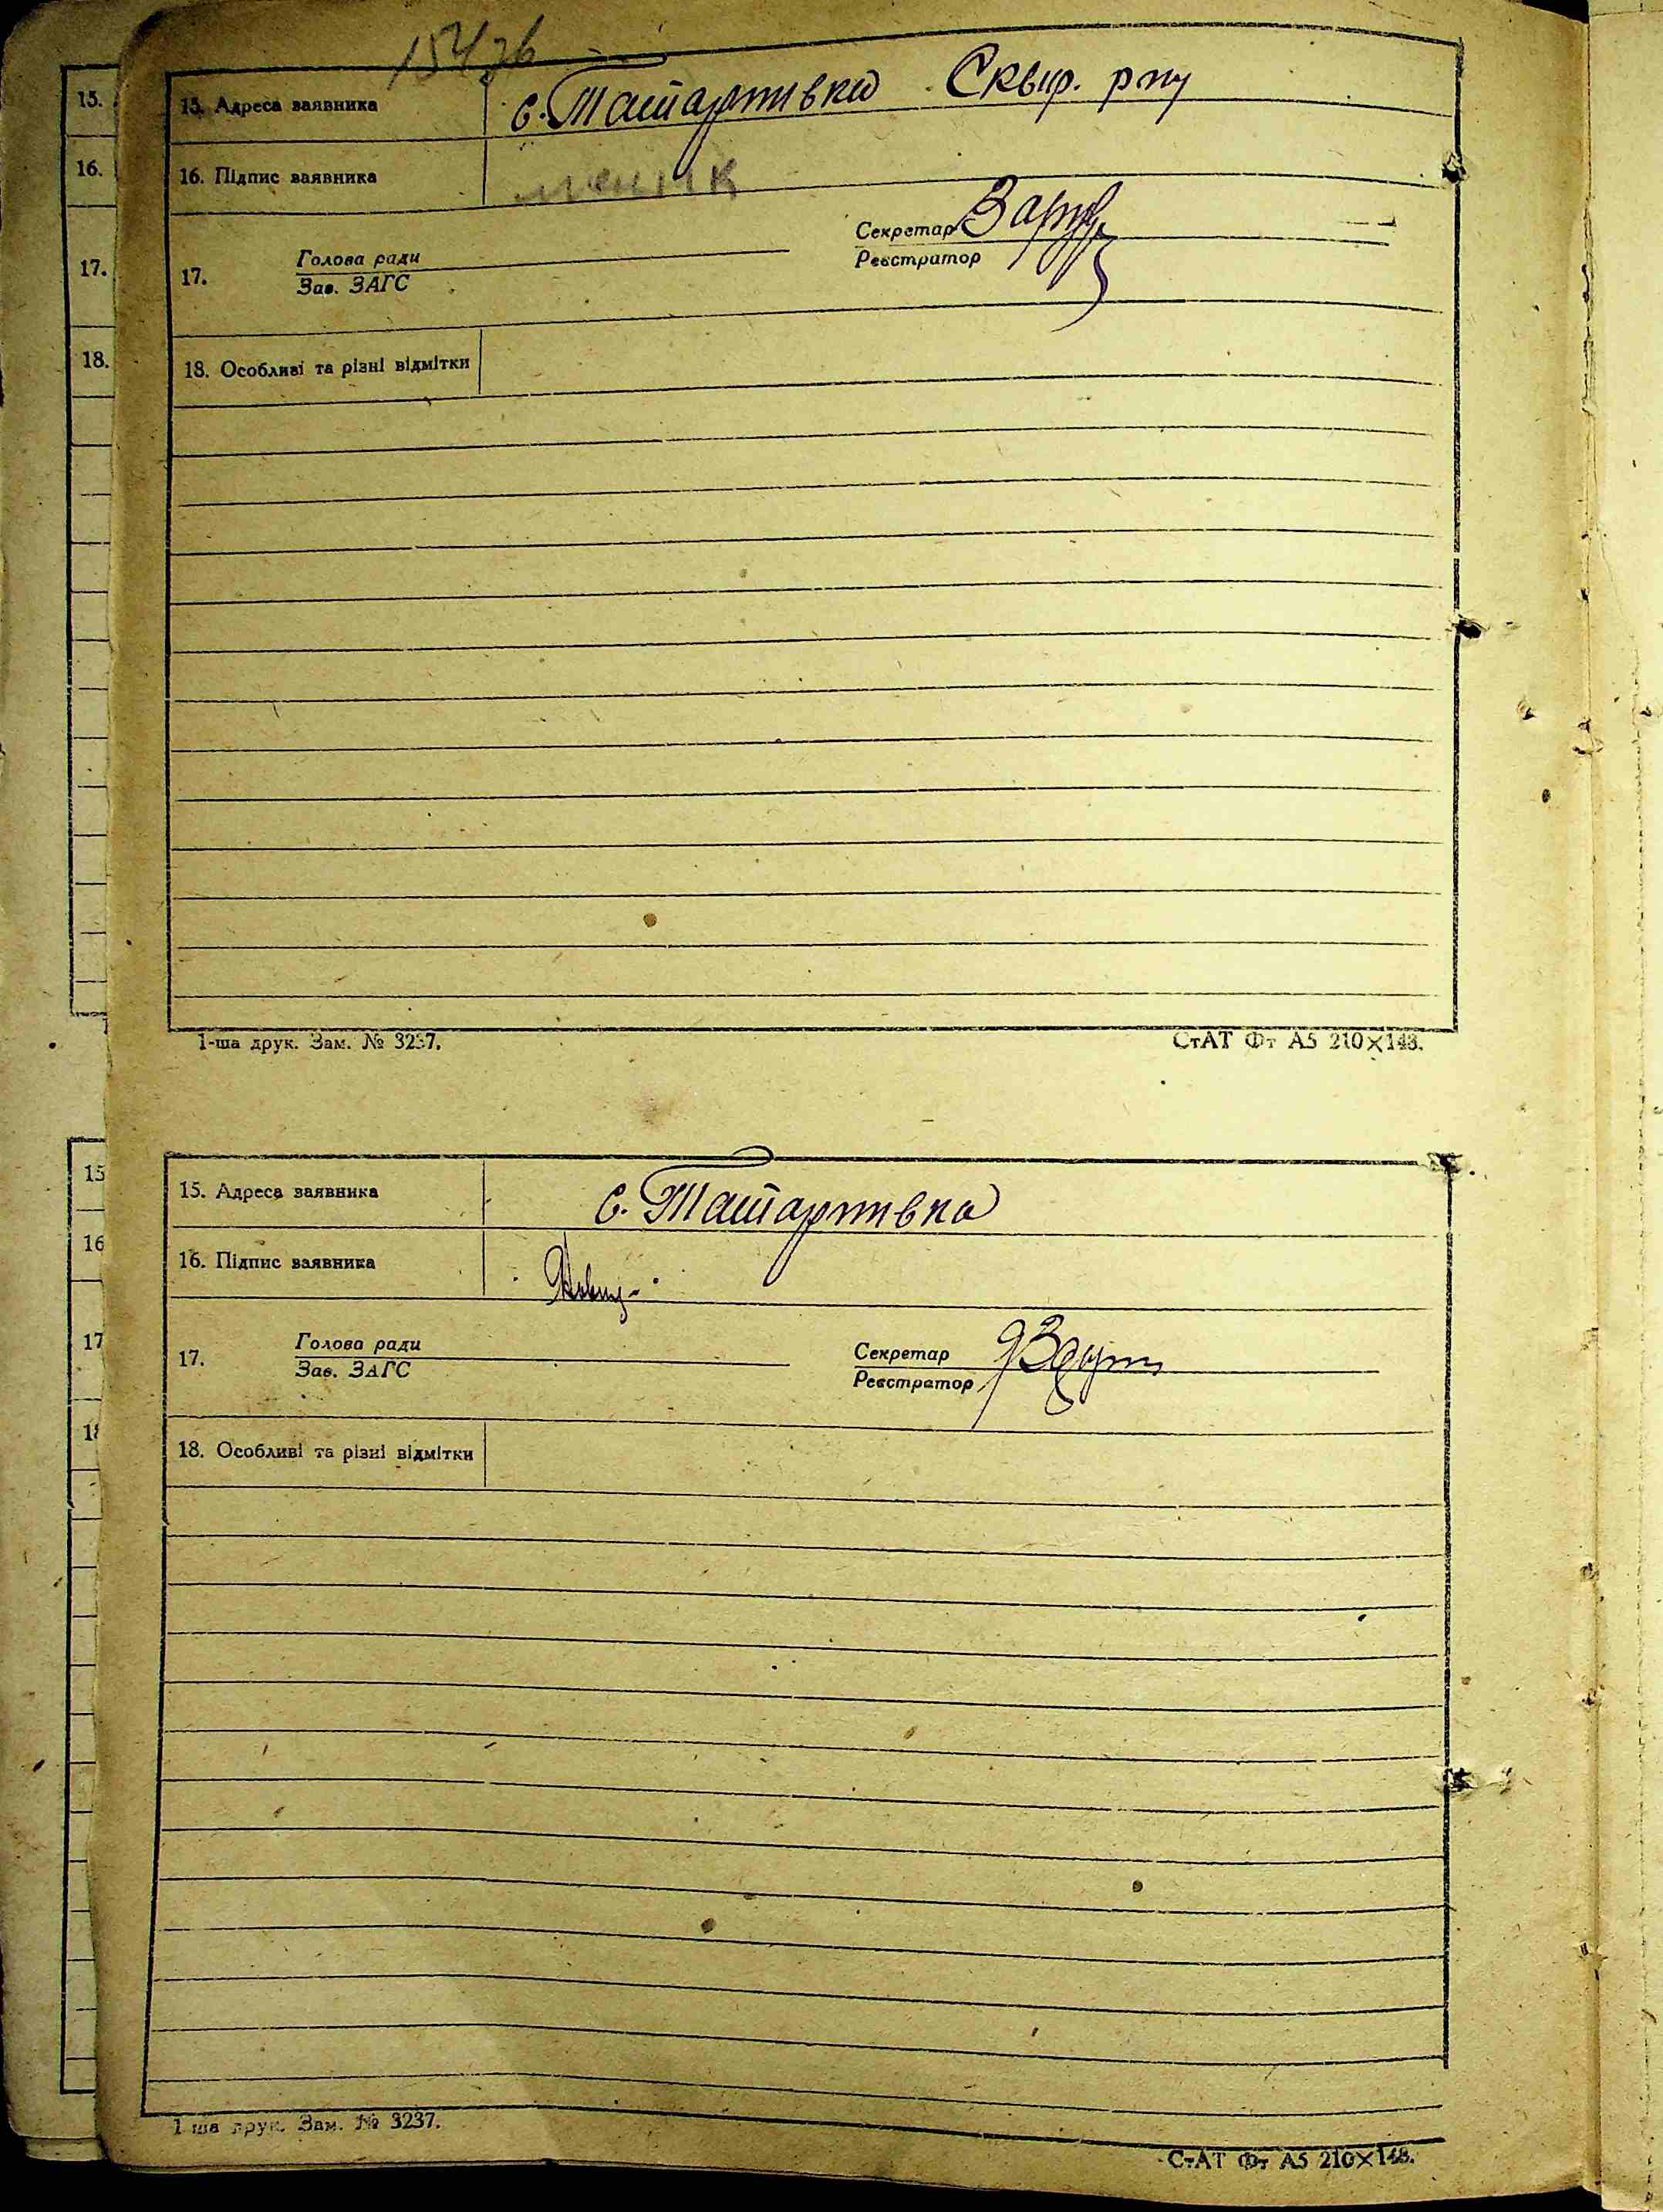 15.
16.
17.
18.
15. Адреса заявника с. Татаринівка Сквир. р-ну
16. Підпис заявника
17. Голова ради Секретар
Зав. ЗАГС Реєстратор
18. Особливі та різні відмітки
1-ша друк. Зам. № 3237.
СтАТ Фт А5 210×148.
15
16
17
15. Адреса заявника с. Татаринівка
16. Підпис заявника
17. Голова ради Секретар
Зав. ЗАГС Реєстратор
18. Особливі та різні відмітки
1-ша друк. Зам. № 3237.
СтАТ Фт А5 210×148.